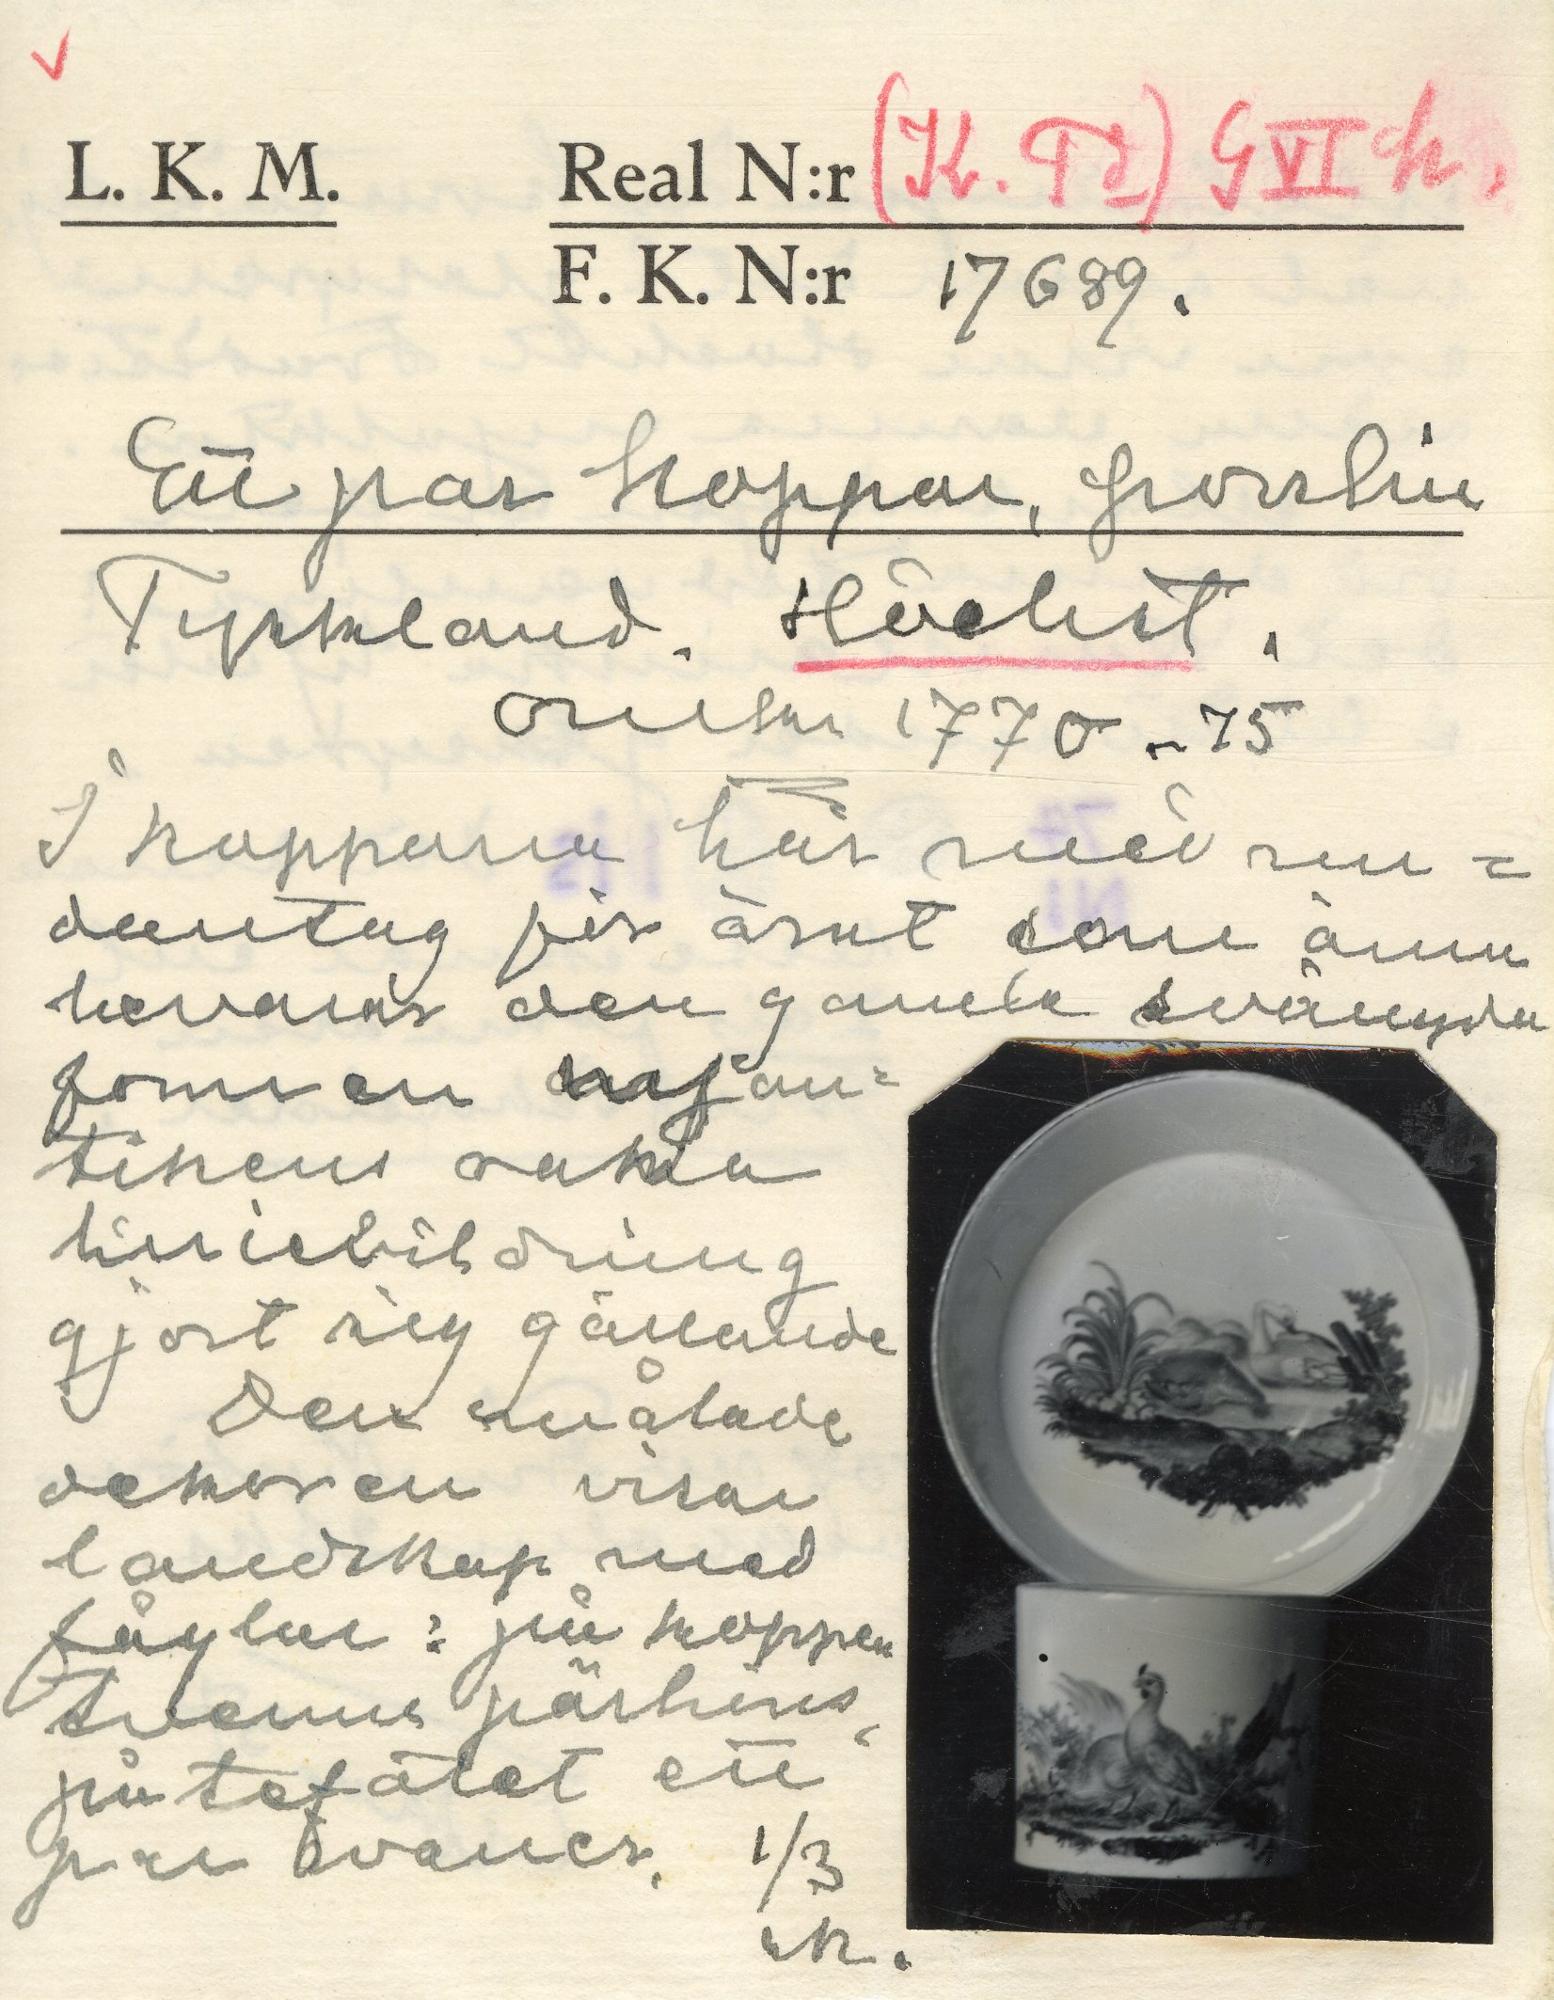 L. K. M.
Real N:r (K. Td) G VI h.
F. K. N:r 17689.
Ett par koppar, porslin
Tyskland. Höchst.
omkr 1770-75
I kopparna har med un=
dantag för örat som ännu
bevarar den gamla svängda
formen nyan=
tikens raka
liniebildning
gjort sig gällande
Den målade
dekoren visar
landskap med
fåglar: på koppen
tvenne pärlhöns,
på tefatet ett
par svaner. 1/3